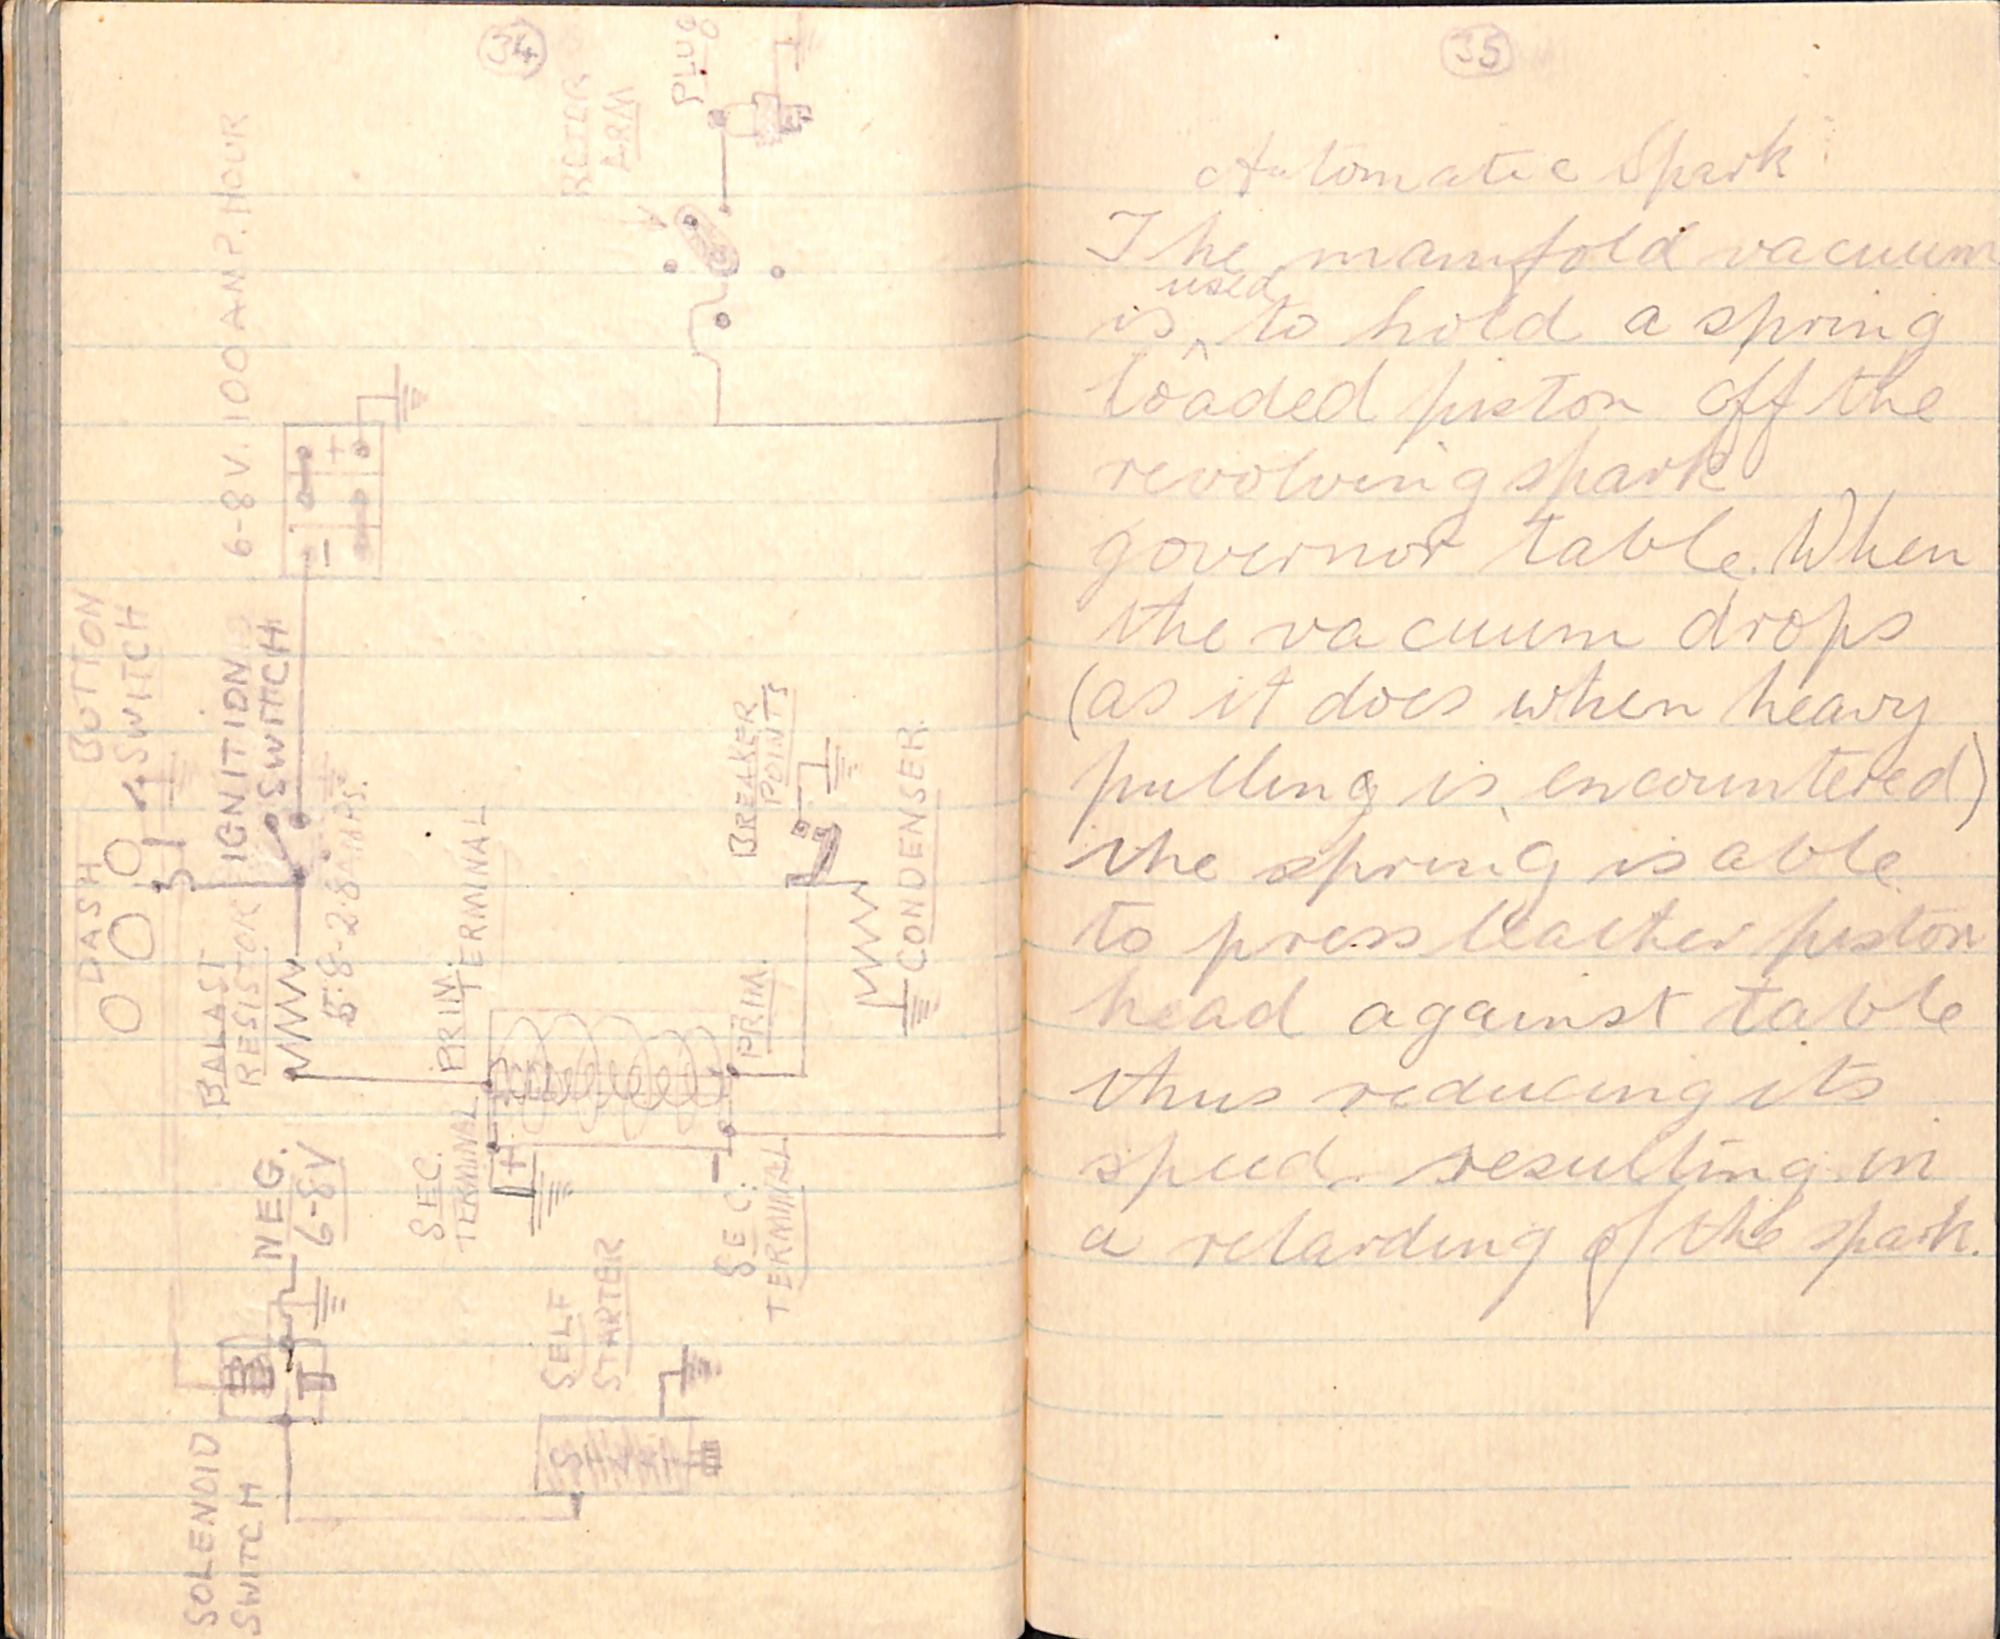 34
PLUG
ROTER
ARM
6-8 V. 100 AMP. HOUR
BUTTON
SWITCH
IGNITION
SWITCH
DASH
BALAST
RESISTOR
AMPS.
PRIM.
TERMINAL
BREAKER
POINTS
CONDENSER
PRIM.
SEC.
TERMINAL
SEC.
TERMINAL
NEG.
6-8V
SELF
STARTER
SOLENOID
SWITCH
35
Automatic Spark
The manifold vacuum
used
is ^ to hold a spring
loaded piston off the
revolving spark
governor table. When
the vacuum drops
(as it does when heavy
pulling is encountered)
the spring is able
to press leather piston
head against table
thus reducing its
speed resulting in
a retarding of the spark.